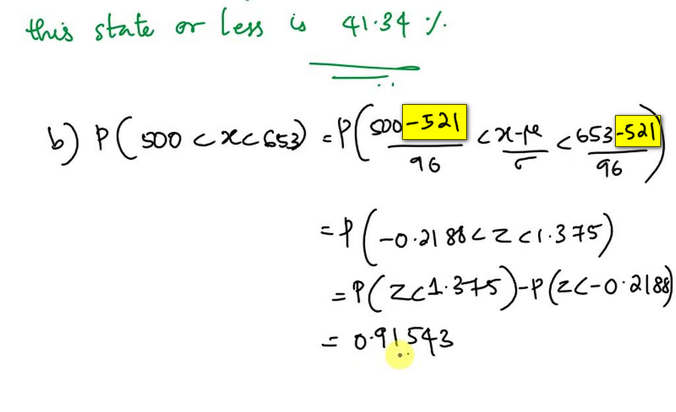 this state or less is 41.34 %.
b) P(500 < x < 653) = P(500-521/96 < x-μ/σ < 653-521/96)
= P(-0.2188 < z < 1.375)
= P(z < 1.375) - P(z < -0.2188)
= 0.91543